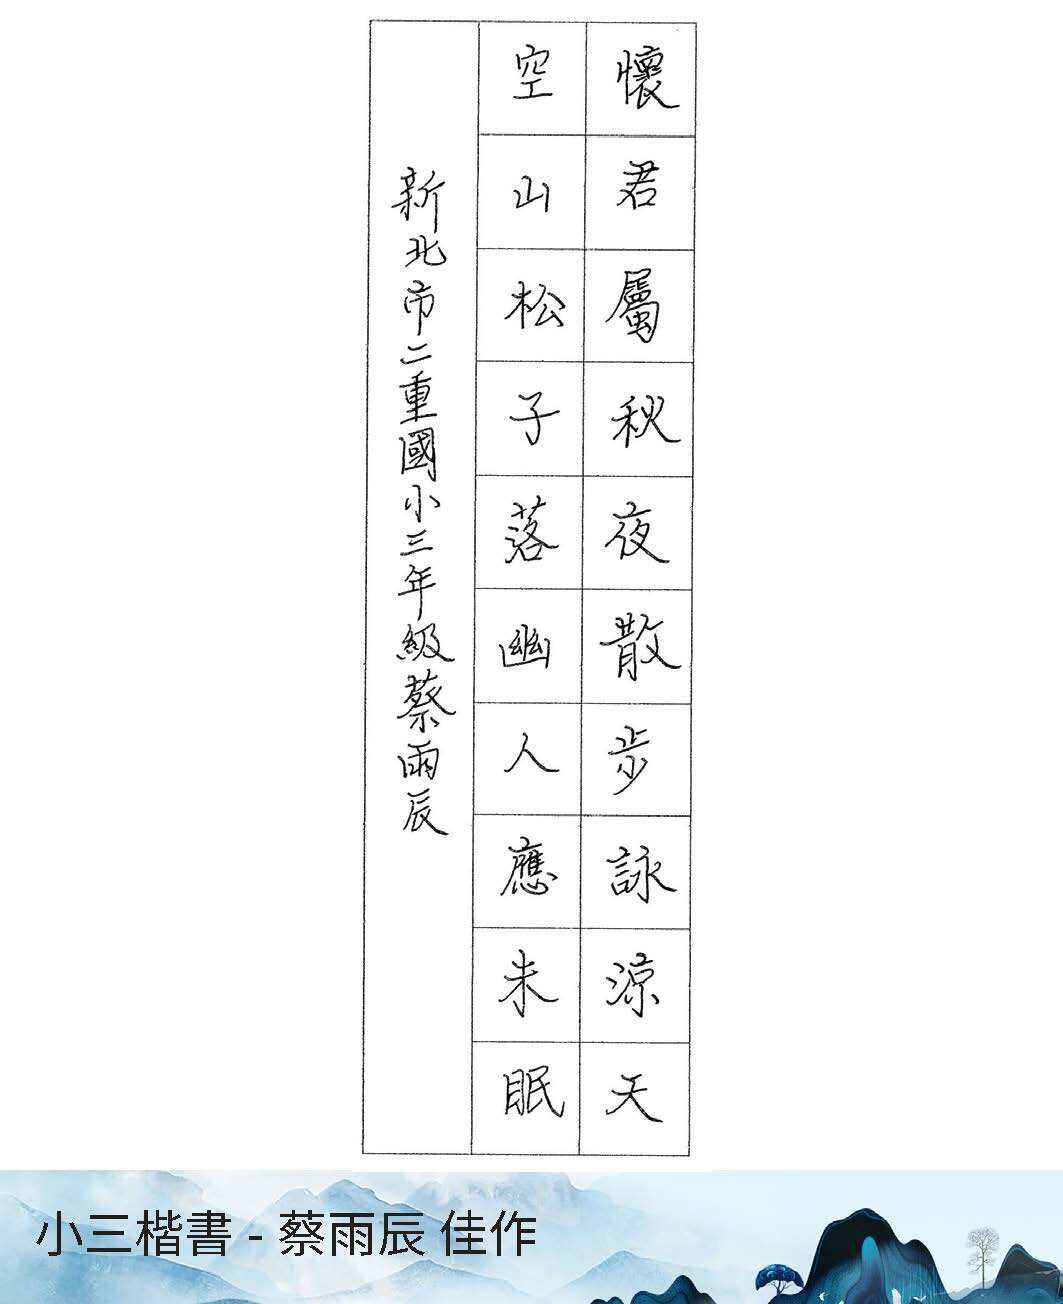 懷君屬秋夜散步詠涼天
空山松子落幽人應未眠
新北市二重國小三年級蔡雨辰
小三楷書 - 蔡雨辰 佳作